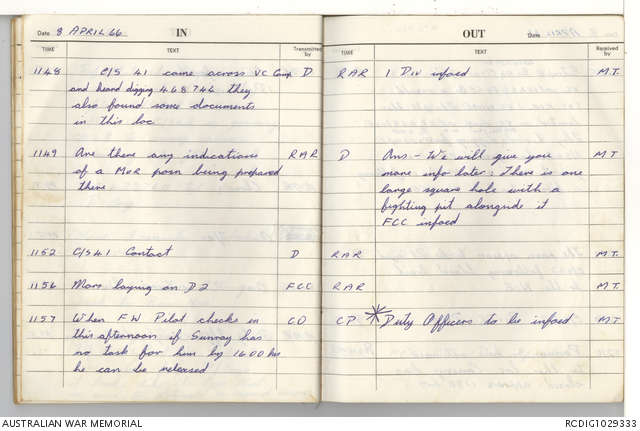 Date 8 APRIL 66 IN
TIME TEXT Transmitted by
1148 C/S 41 came across VC Camp D
and heard digging 468746 they
also found some documents
in this loc
1149 Are there any indications RAR
of a MOR posn being prepared
there
1152 C/S 41 Contact D
1156 Mors laying on D2 FCC
1157 When FW Pilot checks in CO
this afternoon if Sunray has
no task for him by 1600 hrs
he can be released
OUT Date
TIME TEXT Received by
RAR 1 Div infoed M.T.
D Ans - We will give you MT
more info later: There is one
large square hole with a
fighting pit alongside it
FCC infoed
RAR M.T.
RAR M.T.
CP * Duty Officers to be infoed M.T
AUSTRALIAN WAR MEMORIAL RCDIG1029333